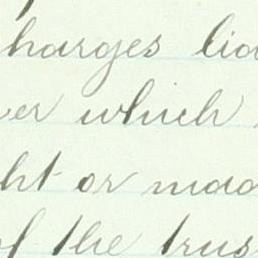 harges lia
er which
ht or mad
of the trus